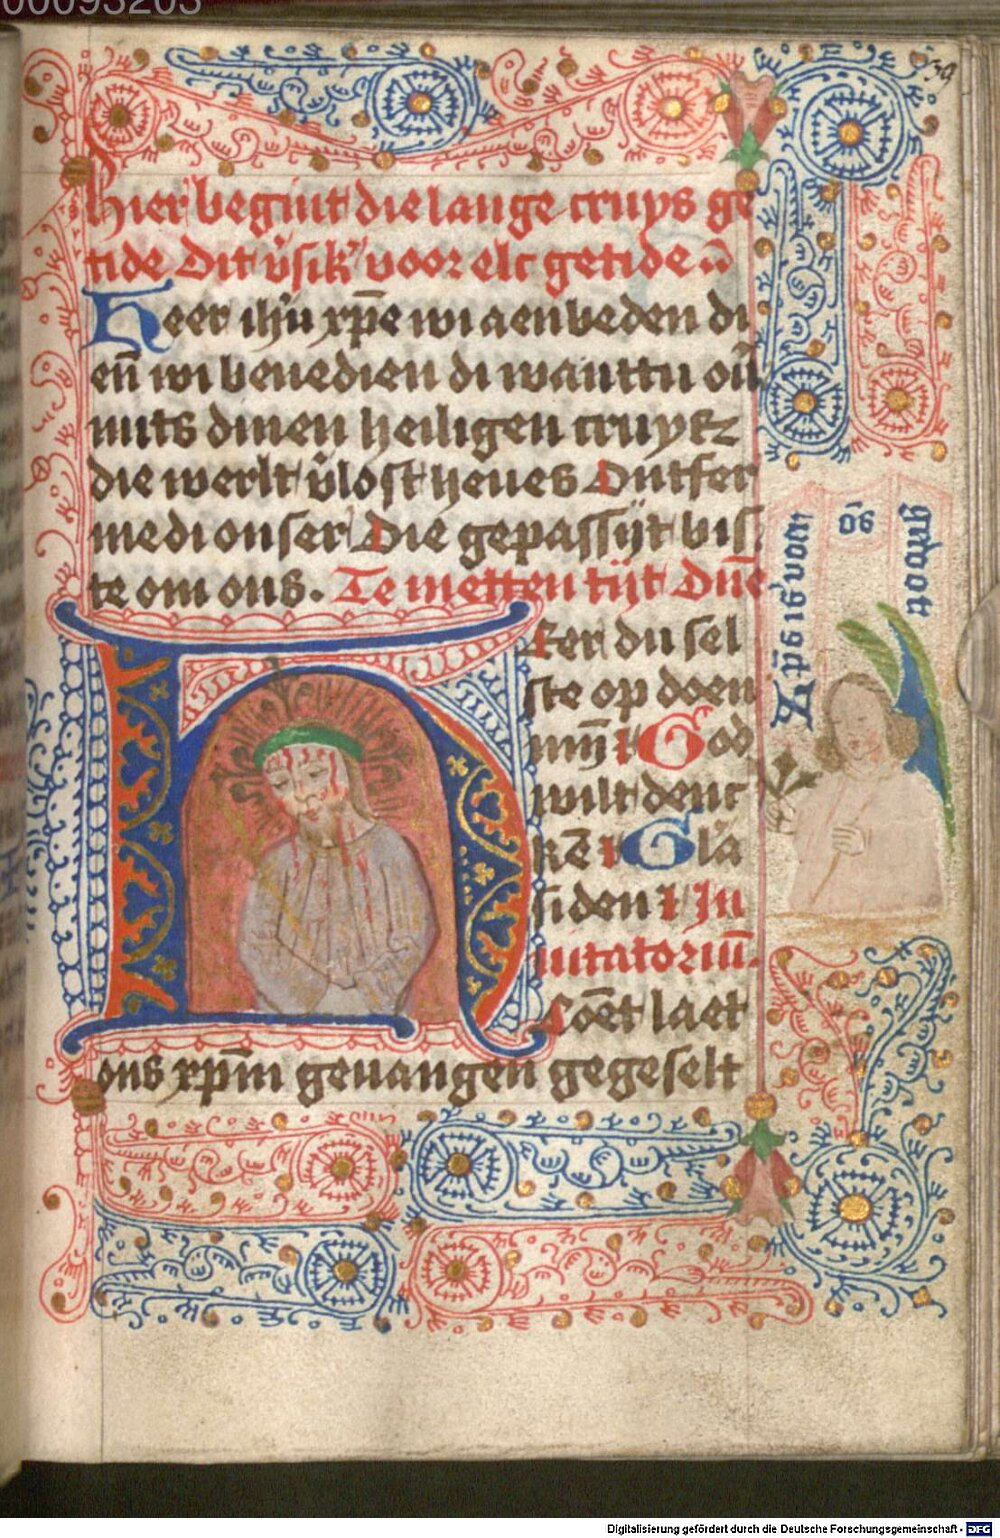 00093203
39
Hier begint die lange cruys ge
tide Dit v̄sik' voor elc getide ·u̅·
Heer ihū xp̄e wi aenbeden di
en̄ wi benedien di wanttu ou̅
mits dinen heiligen cruyse
die werlt v̄lost heues Ontfer
me di onser Die gepassijt bis
te om ons. Te metten tijt Dn̄e
Heer du sel
ste op doen
mijn God
wilt denc
kē Gl'a
si den In
uitatoriū.
Coē̄t laet
ons xp̄m geuangen gegeselt
Xp̄s is voer
ōs
gedoot
Digitalisierung gefördert durch die Deutsche Forschungsgemeinschaft - DFG